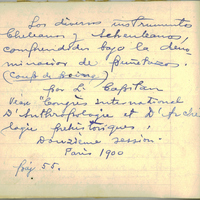 Los diversos instrumentos
Chileanos y Acheuleanos
comprendidos bajo la deno-
minacion de puñetazos.
(Coup de poing)
por L. Capitan
Vease "Congrès international
D'Anthropologie et D'Arché
ologie préhistoriques,
Douzième session.
Paris 1900
pág 55.